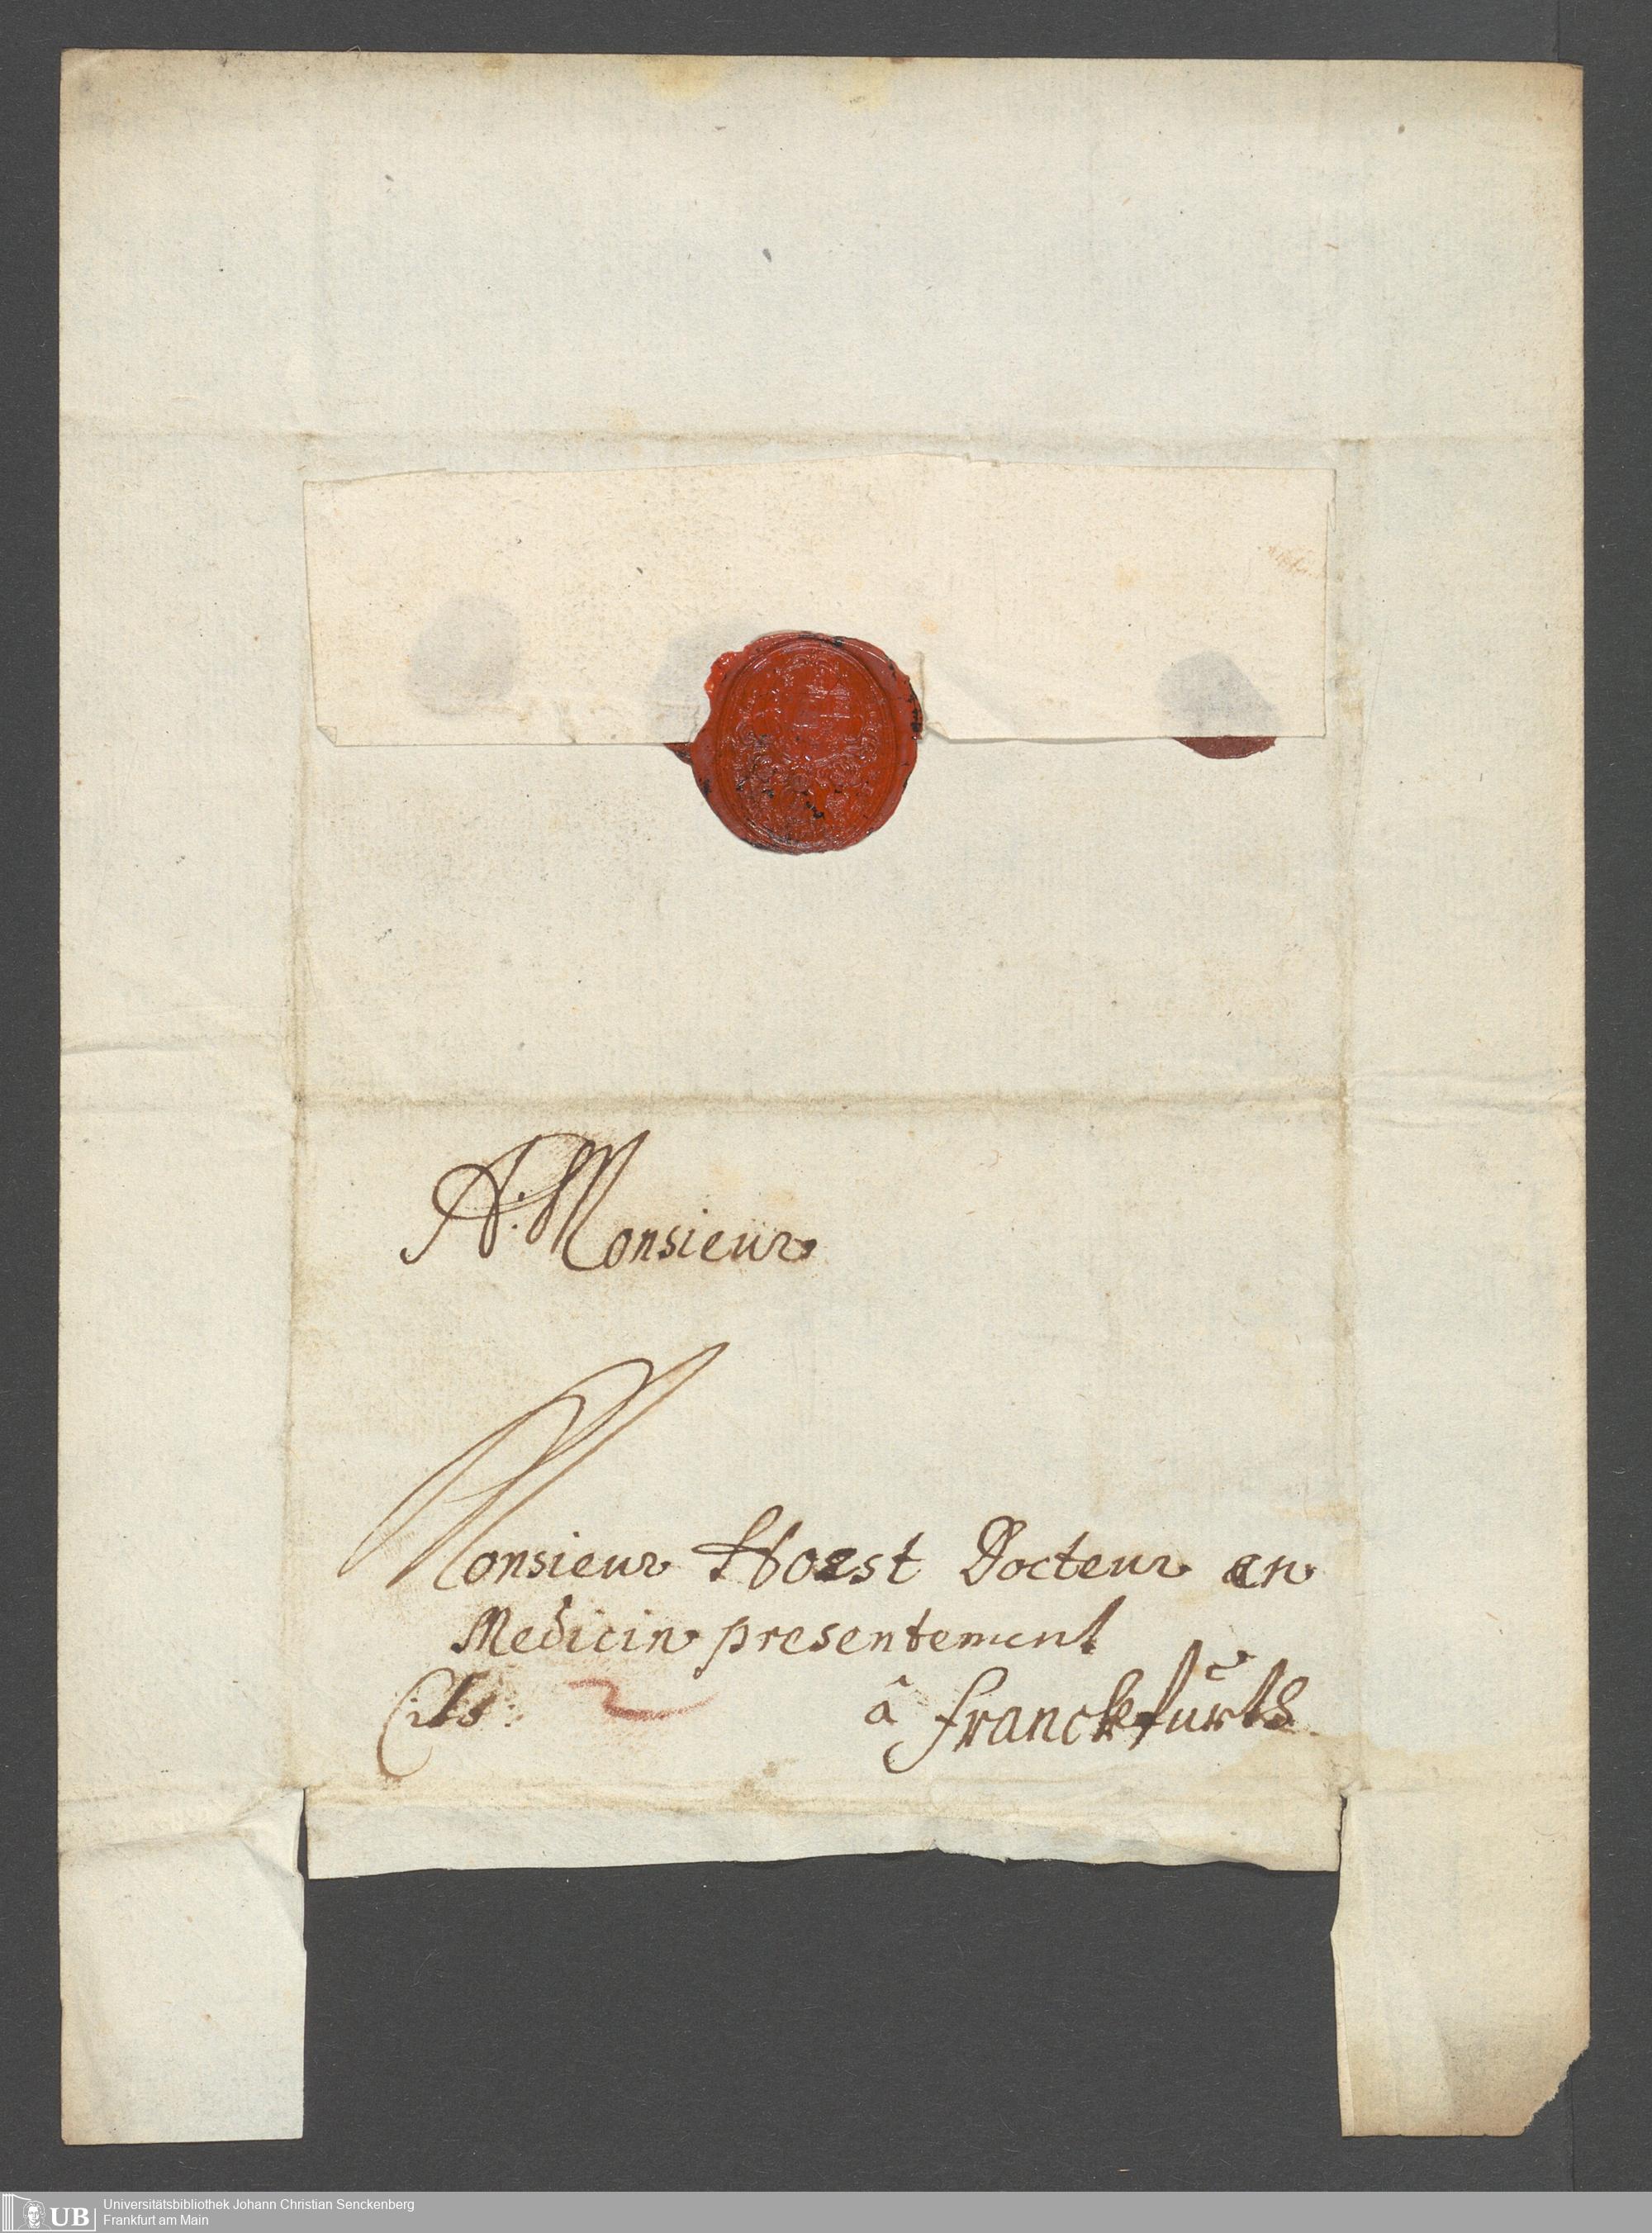 A: Monsieur
Monsieur Horst Docteur en
Medicin presentement
Cito:
â Franckfürth
UB
Universitätsbibliothek Johann Christian Senckenberg
Frankfurt am Main